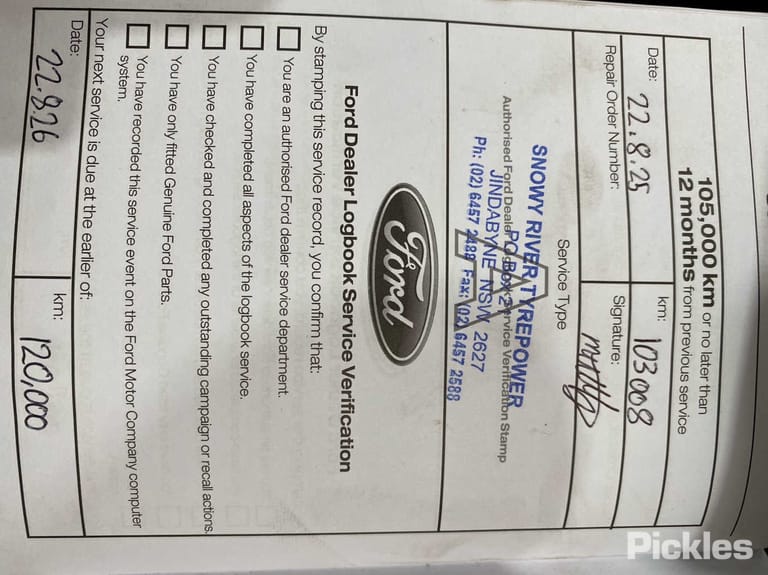 105,000 km or no later than
12 months from previous service
Date: 22.8.25
km: 103008
Repair Order Number:
Signature:
Service Type
A
SNOWY RIVER TYREPOWER
PO Box 2
JINDABYNE NSW 2627
Ph: (02) 6457 2488 Fax: (02) 6457 2588
Authorised Ford Dealer Logbook Service Verification Stamp
Ford
Ford Dealer Logbook Service Verification
By stamping this service record, you confirm that:
You are an authorised Ford dealer service department.
You have completed all aspects of the logbook service.
You have checked and completed any outstanding campaign or recall actions.
You have only fitted Genuine Ford Parts.
You have recorded this service event on the Ford Motor Company computer
system.
Your next service is due at the earlier of:
Date: 22.8.26
km: 120,000
Pickles